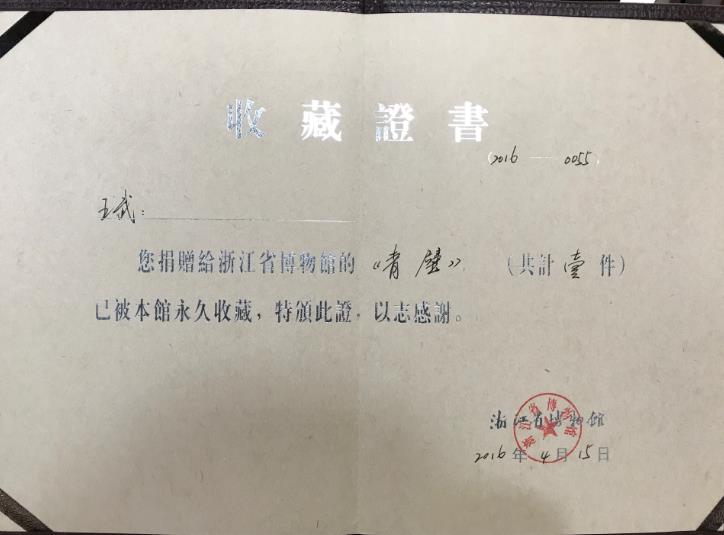 收藏證書
(2016 — 0055)
王武：
您捐贈給浙江省博物館的《青壁》（共計壹件）
已被本館永久收藏，特頒此證，以志感謝。
浙江省博物館
浙江省博物館
2016年4月15日